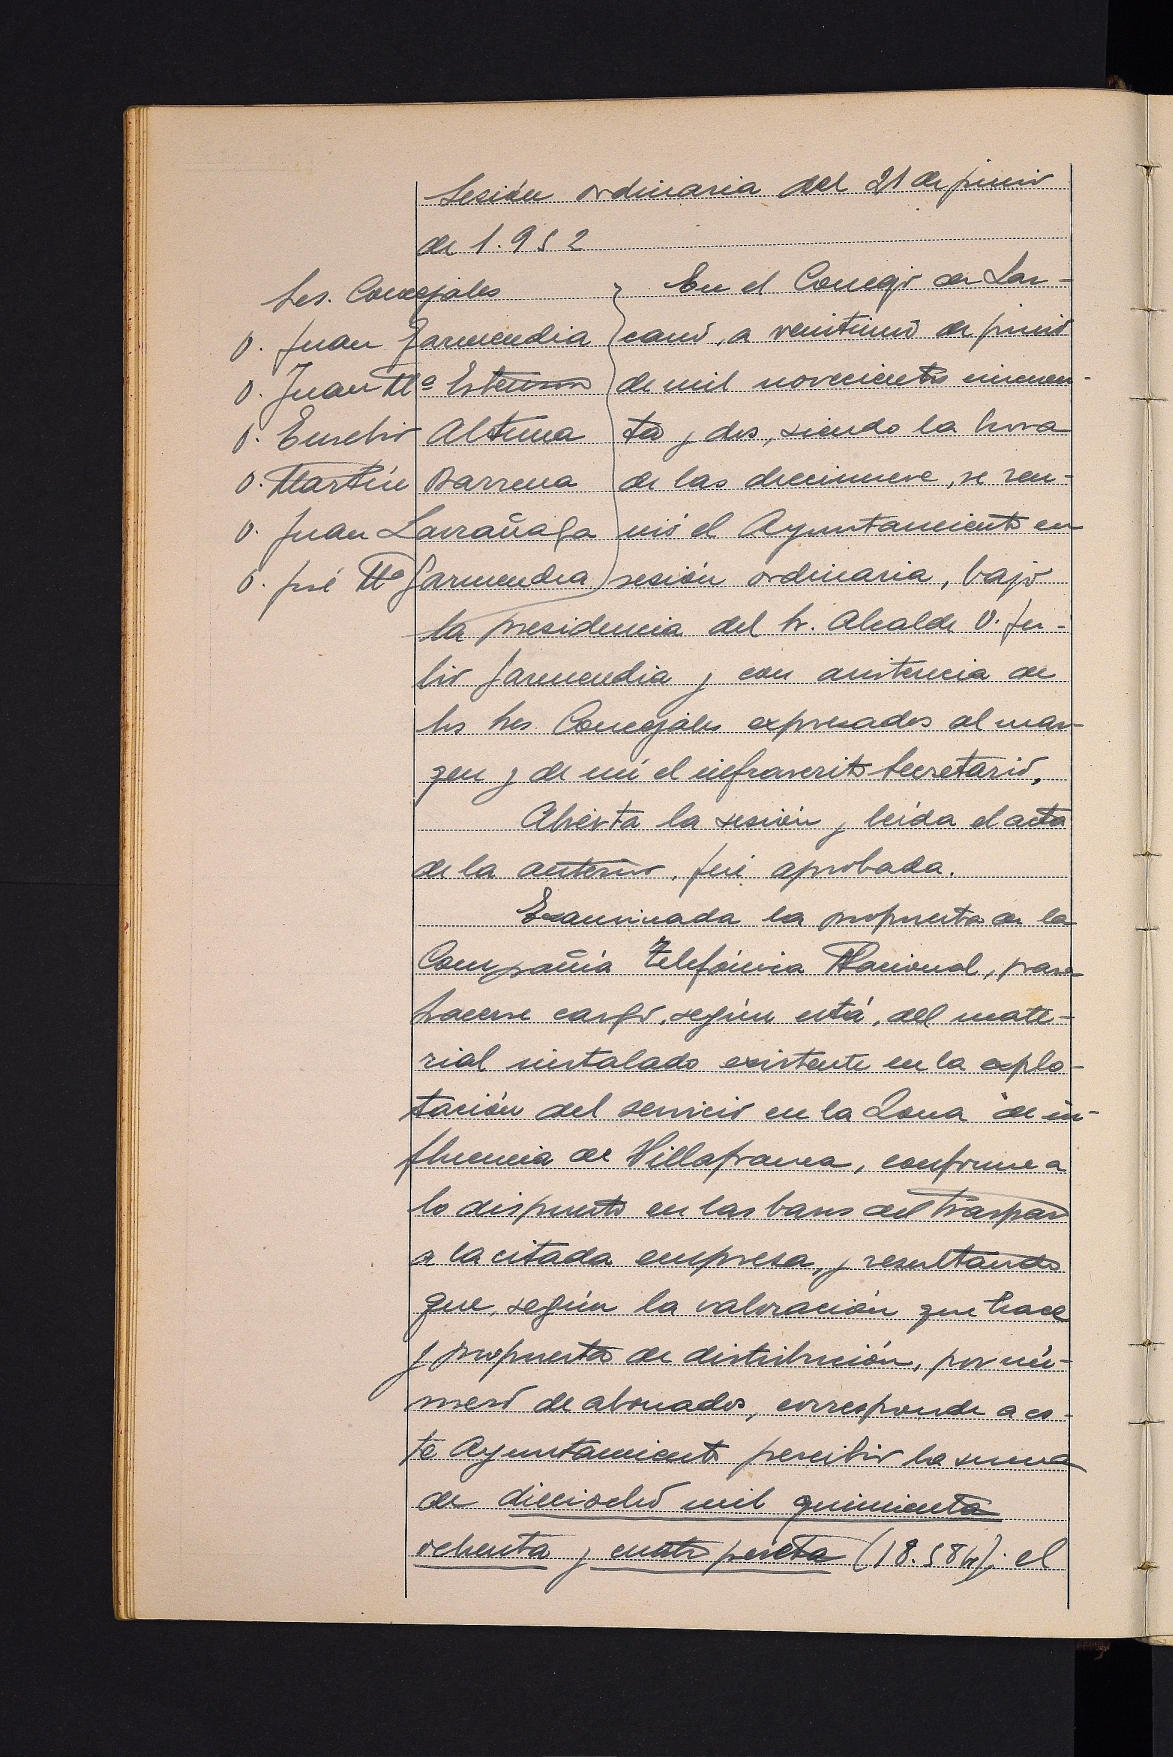 Sesión ordinaria del 21 de junio
de 1.952
Sres. Concejales
D. Juan Garmendia
D. Juan Mª Estensoro
D. Eusebio Altuna
D. Martín Barrena
D. Juan Larrañaga
D. José Mª Garmendia
En el Concejo de Laz-
cano, a veintiuno de junio
de mil novecientos cincuen-
ta y dos, siendo la hora
de las diecinueve, se reu-
nió el Ayuntamiento en
sesión ordinaria, bajo
la presidencia del Sr. Alcalde D. Ju-
lio Garmendia y con asistencia de
los Sres Concejales expresados al mar-
gen y de mí el infrascrito Secretario.
Abierta la sesión y leída el acta
de la anterior, fué aprobada.
Examinada la propuesta de la
Compañía Telefónica Nacional, para
hacerse cargo, según está, del mate-
rial instalado existente en la explo-
tación del servicio en la Zona de in-
fluencia de Villafranca, conforme a
lo dispuesto en las bases del traspaso
a la citada empresa, y resultando
que, según la valoración que hace
y propuesta de distribución, por nú-
mero de abonados, corresponde a es-
te Ayuntamiento percibir la suma
de dieciocho mil quinientas
ochenta y cuatro pesetas (18.584); el